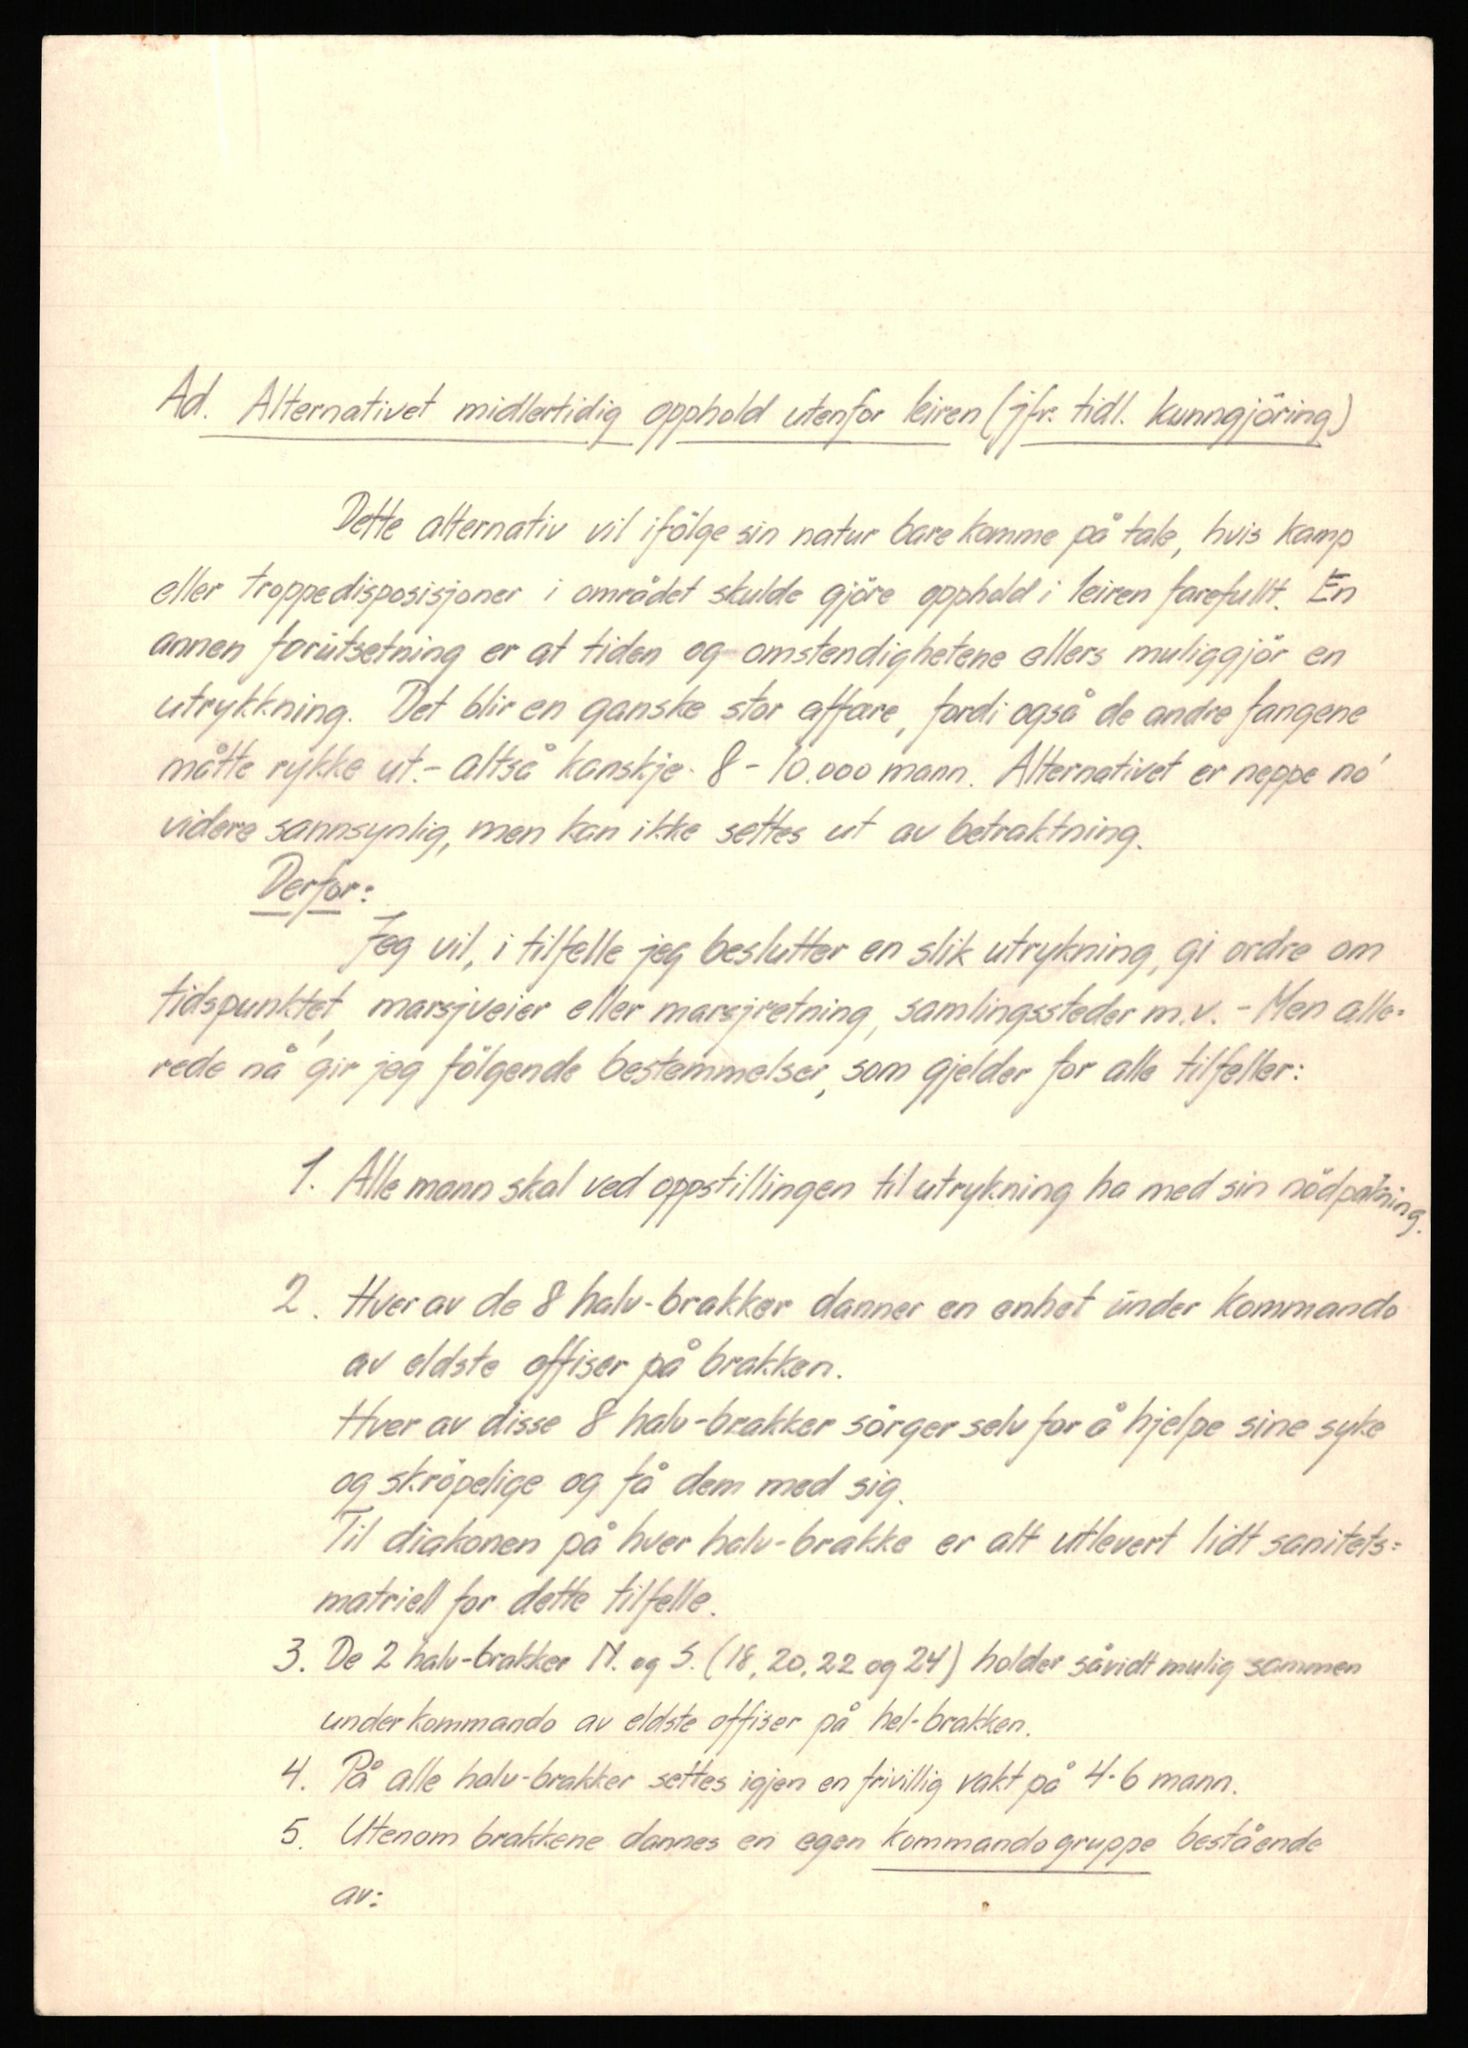 Ad. Alternativet midlertidig opphold utenfor leiren (jfr. tidl. kunngjöring)
Dette alternativ vil ifölge sin natur bare komme på tale, hvis kamp
eller troppedisposisjoner i området skulde gjöre opphold i leiren farefullt. En
annen forutsetning er at tiden og omstendighetene ellers muliggjör en
utrykkning. Det blir en ganske stor affære, fordi også de andre fangene
måtte rykke ut. - altså kanskje 8 - 10.000 mann. Alternativet er neppe nå
videre sannsynlig, men kan ikke settes ut av betraktning.
Derfor:
Jeg vil, i tilfelle jeg beslutter en slik utrykning, gi ordre om
tidspunktet, marsjveier eller marsjretning, samlingssteder m.v. - Men alle-
rede nå gir jeg fölgende bestemmelser, som gjelder for alle tilfeller:
1. Alle mann skal ved oppstillingen til utrykning ha med sin nödpakning.
2. Hver av de 8 halv-brakker danner en enhet under kommando
av eldste offiser på brakken.
Hver av disse 8 halv-brakker sörger selv for å hjelpe sine syke
og skröpelige og få dem med sig.
Til diakonen på hver halv-brakke er alt utlevert lidt sanitets=
matriell for dette tilfelle.
3. De 2 halv-brakker N. og S. (18, 20, 22 og 24) holder såvidt mulig sammen
under kommando av eldste offiser på hel-brakken.
4. På alle halv-brakker settes igjen en frivillig vakt på 4-6 mann.
5. Utenom brakkene dannes en egen kommandogruppe bestående
av: